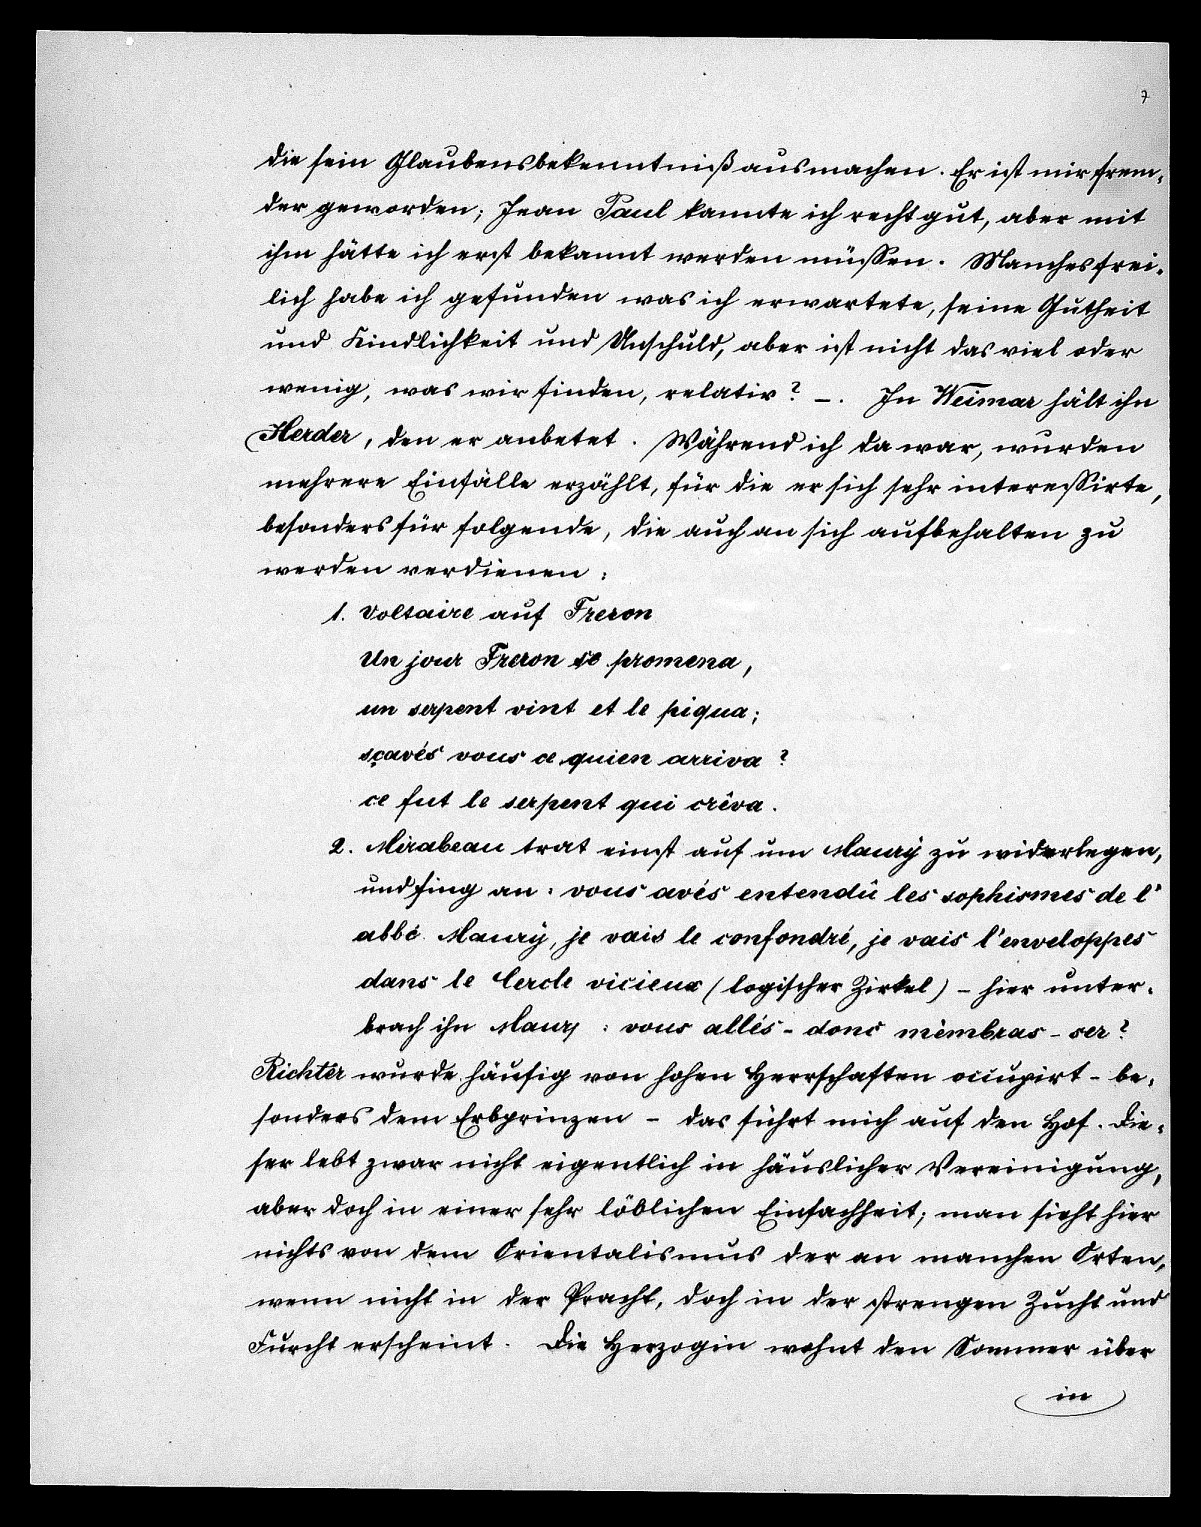 7
die sein Glaubensbekenntniß ausmachen. Er ist mir frem-
der geworden; Jean Paul kannte ich recht gut, aber mit
ihm hätte ich erst bekannt werden müssen. Manches frei-
lich habe ich gefunden was ich erwartete, seine Gutheit
und Kindlichkeit und Unschuld, aber ist nicht das viel oder
wenig, was wir finden, relativ? –. In Weimar hält ihn
Herder, den er anbetet. Während ich da war, wurden
mehrere Einfälle erzählt, für die er sich sehr interessirte,
besonders für folgende, die auch an sich aufbehalten zu
werden verdienen:
1. Voltaire auf Freron
Un jour Freron se promena,
un serpent vint et le piqua;
sçavés vous ce quien arriva?
ce fut le serpent qui crêva.
2. Mirabeau trat einst auf um Maurÿ zu widerlegen,
und fing an: vous avés entendû les sophismes de l'
abbé Maurÿ, je vais le confondré, je vais l'enveloppes
dans le Cercle vicieux (logischer Zirkel) – hier unter-
brach ihn Maury: vous allés – donc mèmbras – ser?
Richter wurde häufig von hohen Herrschaften occupirt – be-
sonders dem Erbprinzen – das führt mich auf den Hof. Die-
ser lebt zwar nicht eigentlich in häuslicher Vereinigung,
aber doch in einer sehr löblichen Einfachheit; man sieht hier
nichts von dem Orientalismus der an manchen Orten,
wenn nicht in der Pracht, doch in der strengen Zucht und
Furcht erscheint. Die Herzogin wohnt den Sommer über
in